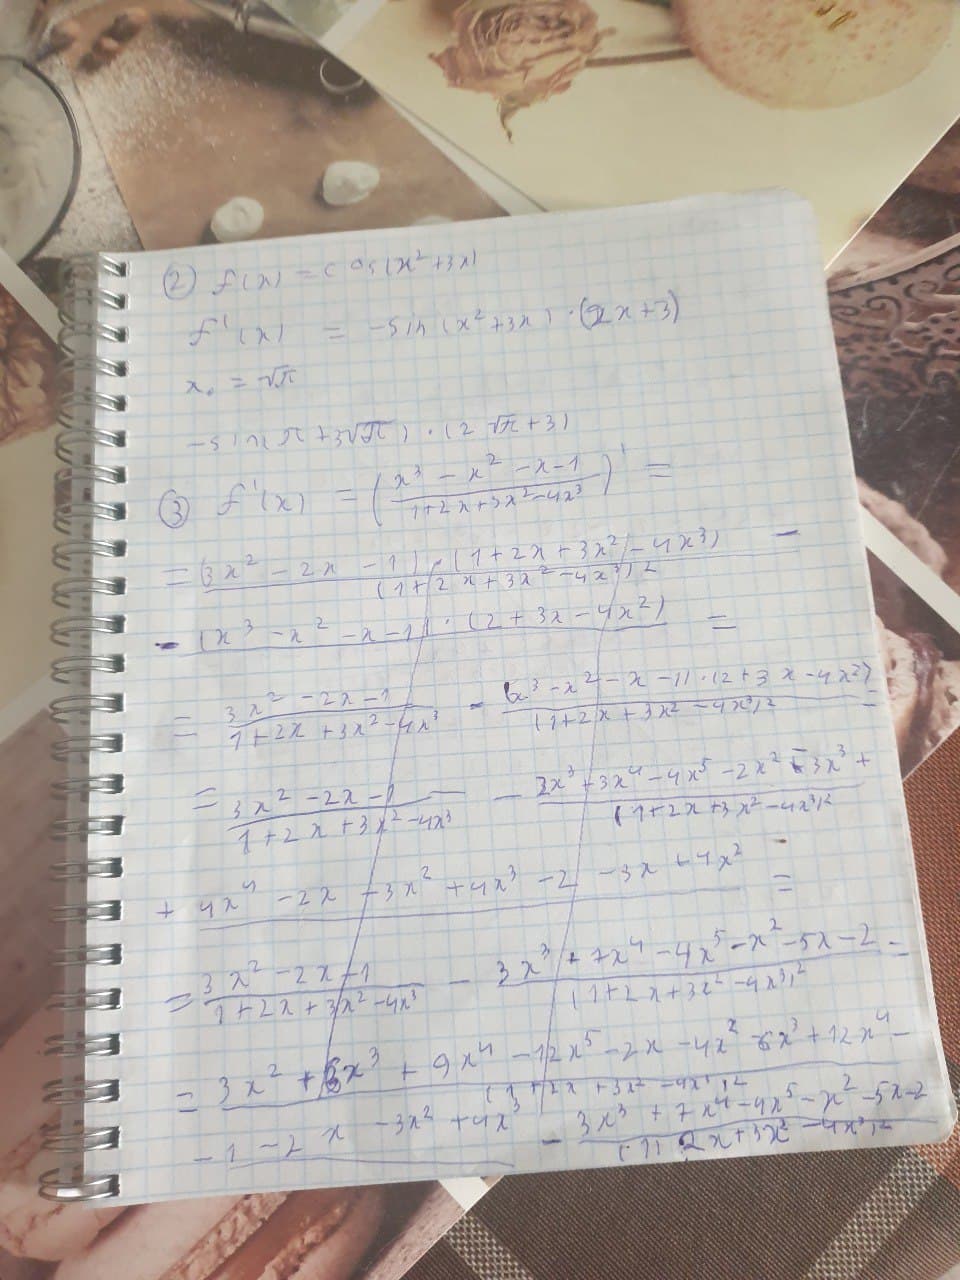 ② f(x) = cos(x² + 3x)
f'(x) = -sin(x² + 3x) · (2x + 3)
x₀ = √π
-sin(π + 3√π) · (2√π + 3)
③ f'(x) = ((x³ - x² - x - 1)/(1 + 2x + 3x² - 4x³))' =
= (3x² - 2x - 1) · (1 + 2x + 3x² - 4x³)/(1 + 2x + 3x² - 4x³)² -
- (x³ - x² - x - 1) · (2 + 3x - 4x²) =
= (3x² - 2x - 1)/(1 + 2x + 3x² - 4x³) - (x³ - x² - x - 1) · (2 + 3x - 4x²)/(1 + 2x + 3x² - 4x³)² =
= (3x² - 2x - 1)/(1 + 2x + 3x² - 4x³) - (2x³ + 3x⁴ - 4x⁵ - 2x² - 3x³ +)/(1 + 2x + 3x² - 4x³)²
+ 4x⁴ - 2x - 3x² + 4x³ - 2 - 3x + 4x² =
= (3x² - 2x - 1)/(1 + 2x + 3x² - 4x³) - (3x³ + 7x⁴ - 4x⁵ - x² - 5x - 2)/(1 + 2x + 3x² - 4x³)² =
= (3x² + 6x³ + 9x⁴ - 12x⁵ - 2x - 4x² - 6x³ + 12x⁴ -)/(1 + 2x + 3x² - 4x³)²
- 1 - 2x - 3x² + 4x³ - (3x³ + 7x⁴ - 4x⁵ - x² - 5x - 2)/(1 + 2x + 3x² - 4x³)²